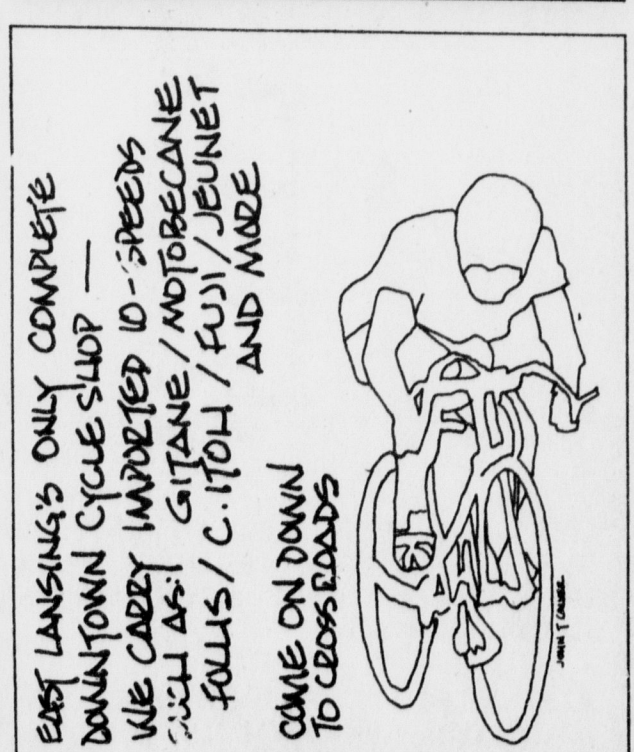 EAST LANSING'S ONLY COMPLETE
DOWNTOWN CYCLE SHOP —
WE CARRY IMPORTED 10-SPEEDS
SUCH AS: GITANE / MOTOBECANE
FOLLIS / C. ITOH / FUJI / JEUNET
AND MORE
COME ON DOWN
TO CROSSROADS
JOHN T